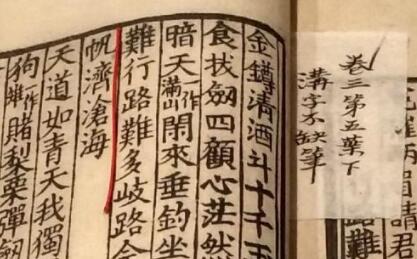 請君
卷三第五葉下
溝字不缺筆
金鐏清酒斗十千玉
食拔劒四顧心茫然
暗天一作滿山閑來垂釣坐
難行路難多岐路今
帆濟滄海
天道如青天我獨
狗一作雉賭梨栗彈劒